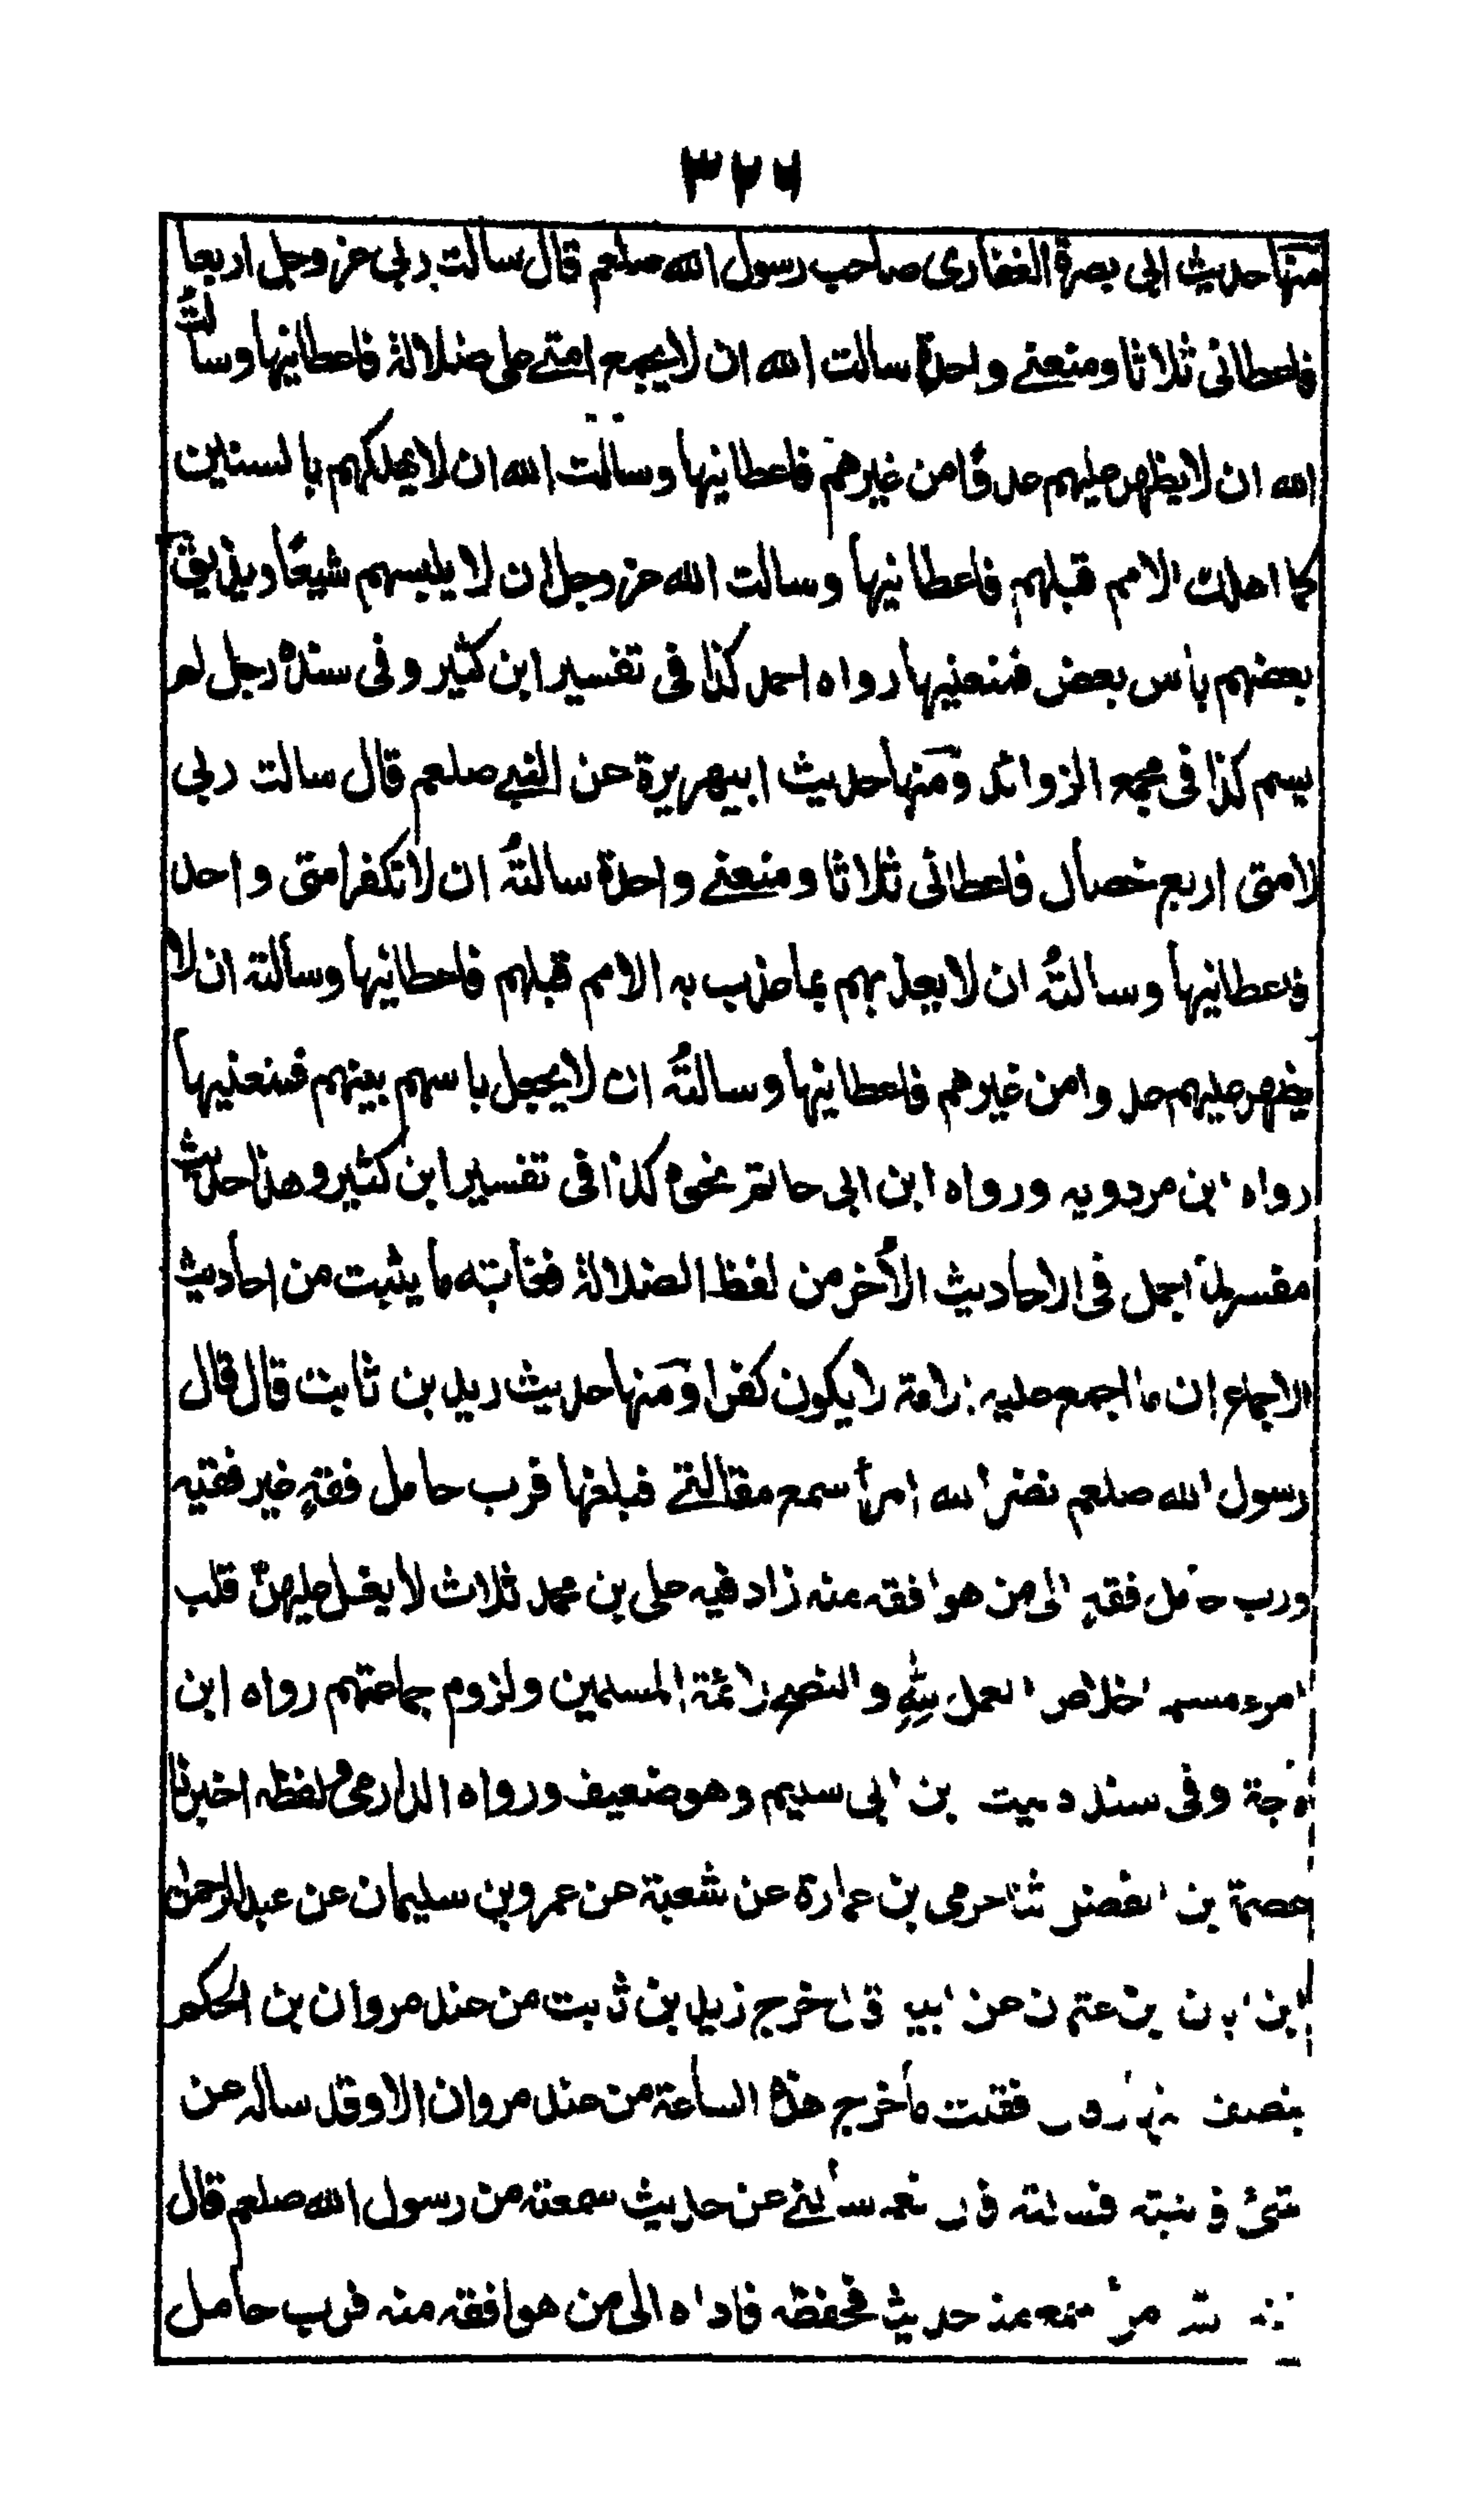 ٣٢٦
منها حديث ابي بصرة الغفاري صاحب رسول الله صلعم قال سالت ربي عز وجل اربعا
فاعطاني ثلاثا ومنعني واحدة سالت الله ان لا يجمع امتي على ضلالة فاعطانيها وسالت
الله ان لا يظهر عليهم عدوًا من غيرهم فاعطانيها وسالت الله ان لا يهلكهم بالسنين
كما اهلك الامم قبلهم فاعطانيها وسالت الله عز وجل ان لا يلبسهم شيعًا ويذيق
بعضهم بأس بعض فمنعنيها رواه احمد كذا في تفسير ابن كثير وفي سنده رجل لم
يسم كذا في مجمع الزوائد ومنها حديث ابيهريرة عن النبي صلعم قال سالت ربي
لامتي اربع خصال فاعطاني ثلاثا ومنعني واحدة سالته ان لا تكفر امتي واحد
فاعطانيها وسالتهُ ان لا يعذبهم بما عذب به الامم قبلهم فاعطانيها وسألته ان لا
يظهر عليهم عدوا من غيرهم فاعطانيها وسالتهُ ان لا يجعل باسهم بينهم فمنعنيها
رواه ابن مردويه ورواه ابن ابي حاتم نحوه كذا في تفسير ابن كثير وهذا حديث
مفسر لما اجمل في الاحاديث الأخر من لفظ الضلالة فغايته ما يثبت من احاديث
الاجماع ان ما اجمع عليه الامة لا يكون كفرا ومنها حديث زيد بن ثابت قال قال
رسول الله صلعم نضر الله امرأ سمع مقالتي فبلغها فرب حامل فقهٍ غير فقيه
ورب حامل فقهٍ الى من هو افقه منه زاد فيه علي بن محمد ثلاث لا يغل عليهنّ قلب
امرء مسلم اخلاص العمل للّٰهِ والنصح لائمة المسلمين ولزوم جماعتهم رواه ابن
ماجة وفي سنده ليث بن ابي سليم وهو ضعيف ورواه الدارمي لفظه اخبرنا
عصمة بن الفضل ثنا حرمي بن عمارة عن شعبة عن عمرو بن سليمان عن عبد الرحمن
ابن ابان بن عثمان عن ابيه قال خرج زيد بن ثابت من عند مروان بن الحكم
بنصف النهار قال فقلت ما خرج هذه الساعة من عند مروان الا وقد ساله عن
شئ فاتيته فسالته قال نعم سألني عن حديث سمعته من رسول الله صلعم قال
نضر الله امرأ سمع منا حديثا فحفظه فاداه الى من هو افقه منه فرب حامل